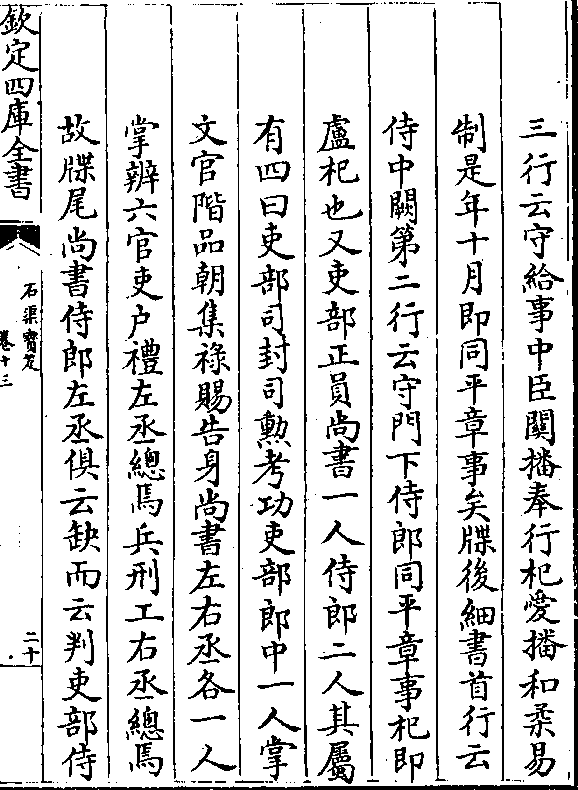 三行云守給事中臣關播奉行杞愛播和柔易
制是年十月即同平章事矣牒後細書首行云
侍中闕第二行云守門下侍郎同平章事杞即
盧杞也又吏部正員尚書一人侍郎二人其屬
有四曰吏部司封司勲考功吏部郎中一人掌
文官階品朝集祿賜告身尚書左右丞各一人
掌辦六官吏户禮左丞總焉兵刑工右丞總焉
故牒尾尚書侍郎左丞俱云缺而云判吏部侍
欽定四庫全書
石渠寳笈
卷十三
二十